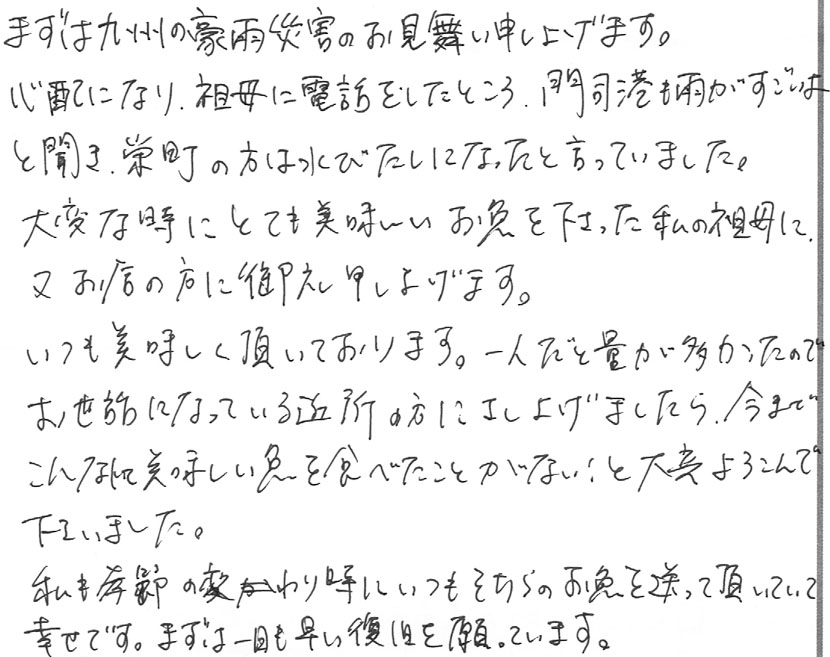 まずは九州の豪雨災害のお見舞い申し上げます。
心配になり、祖母に電話をしたところ、門司港も雨がすごいよ
と聞き、栄町の方は水びたしになったと言っていました。
大変な時にとても美味しいお魚を下さった私の祖母に、
又お店の方に御礼申し上げます。
いつも美味しく頂いております。一人だと量が多かったので
お世話になっている近所の方にさし上げましたら、今まで
こんなに美味しい魚を食べたことがない!と大変よろこんで
下さいました。
私も季節の変わり時にいつもそちらのお魚を送って頂いていて
幸せです。まずは一日も早い復旧を願っています。